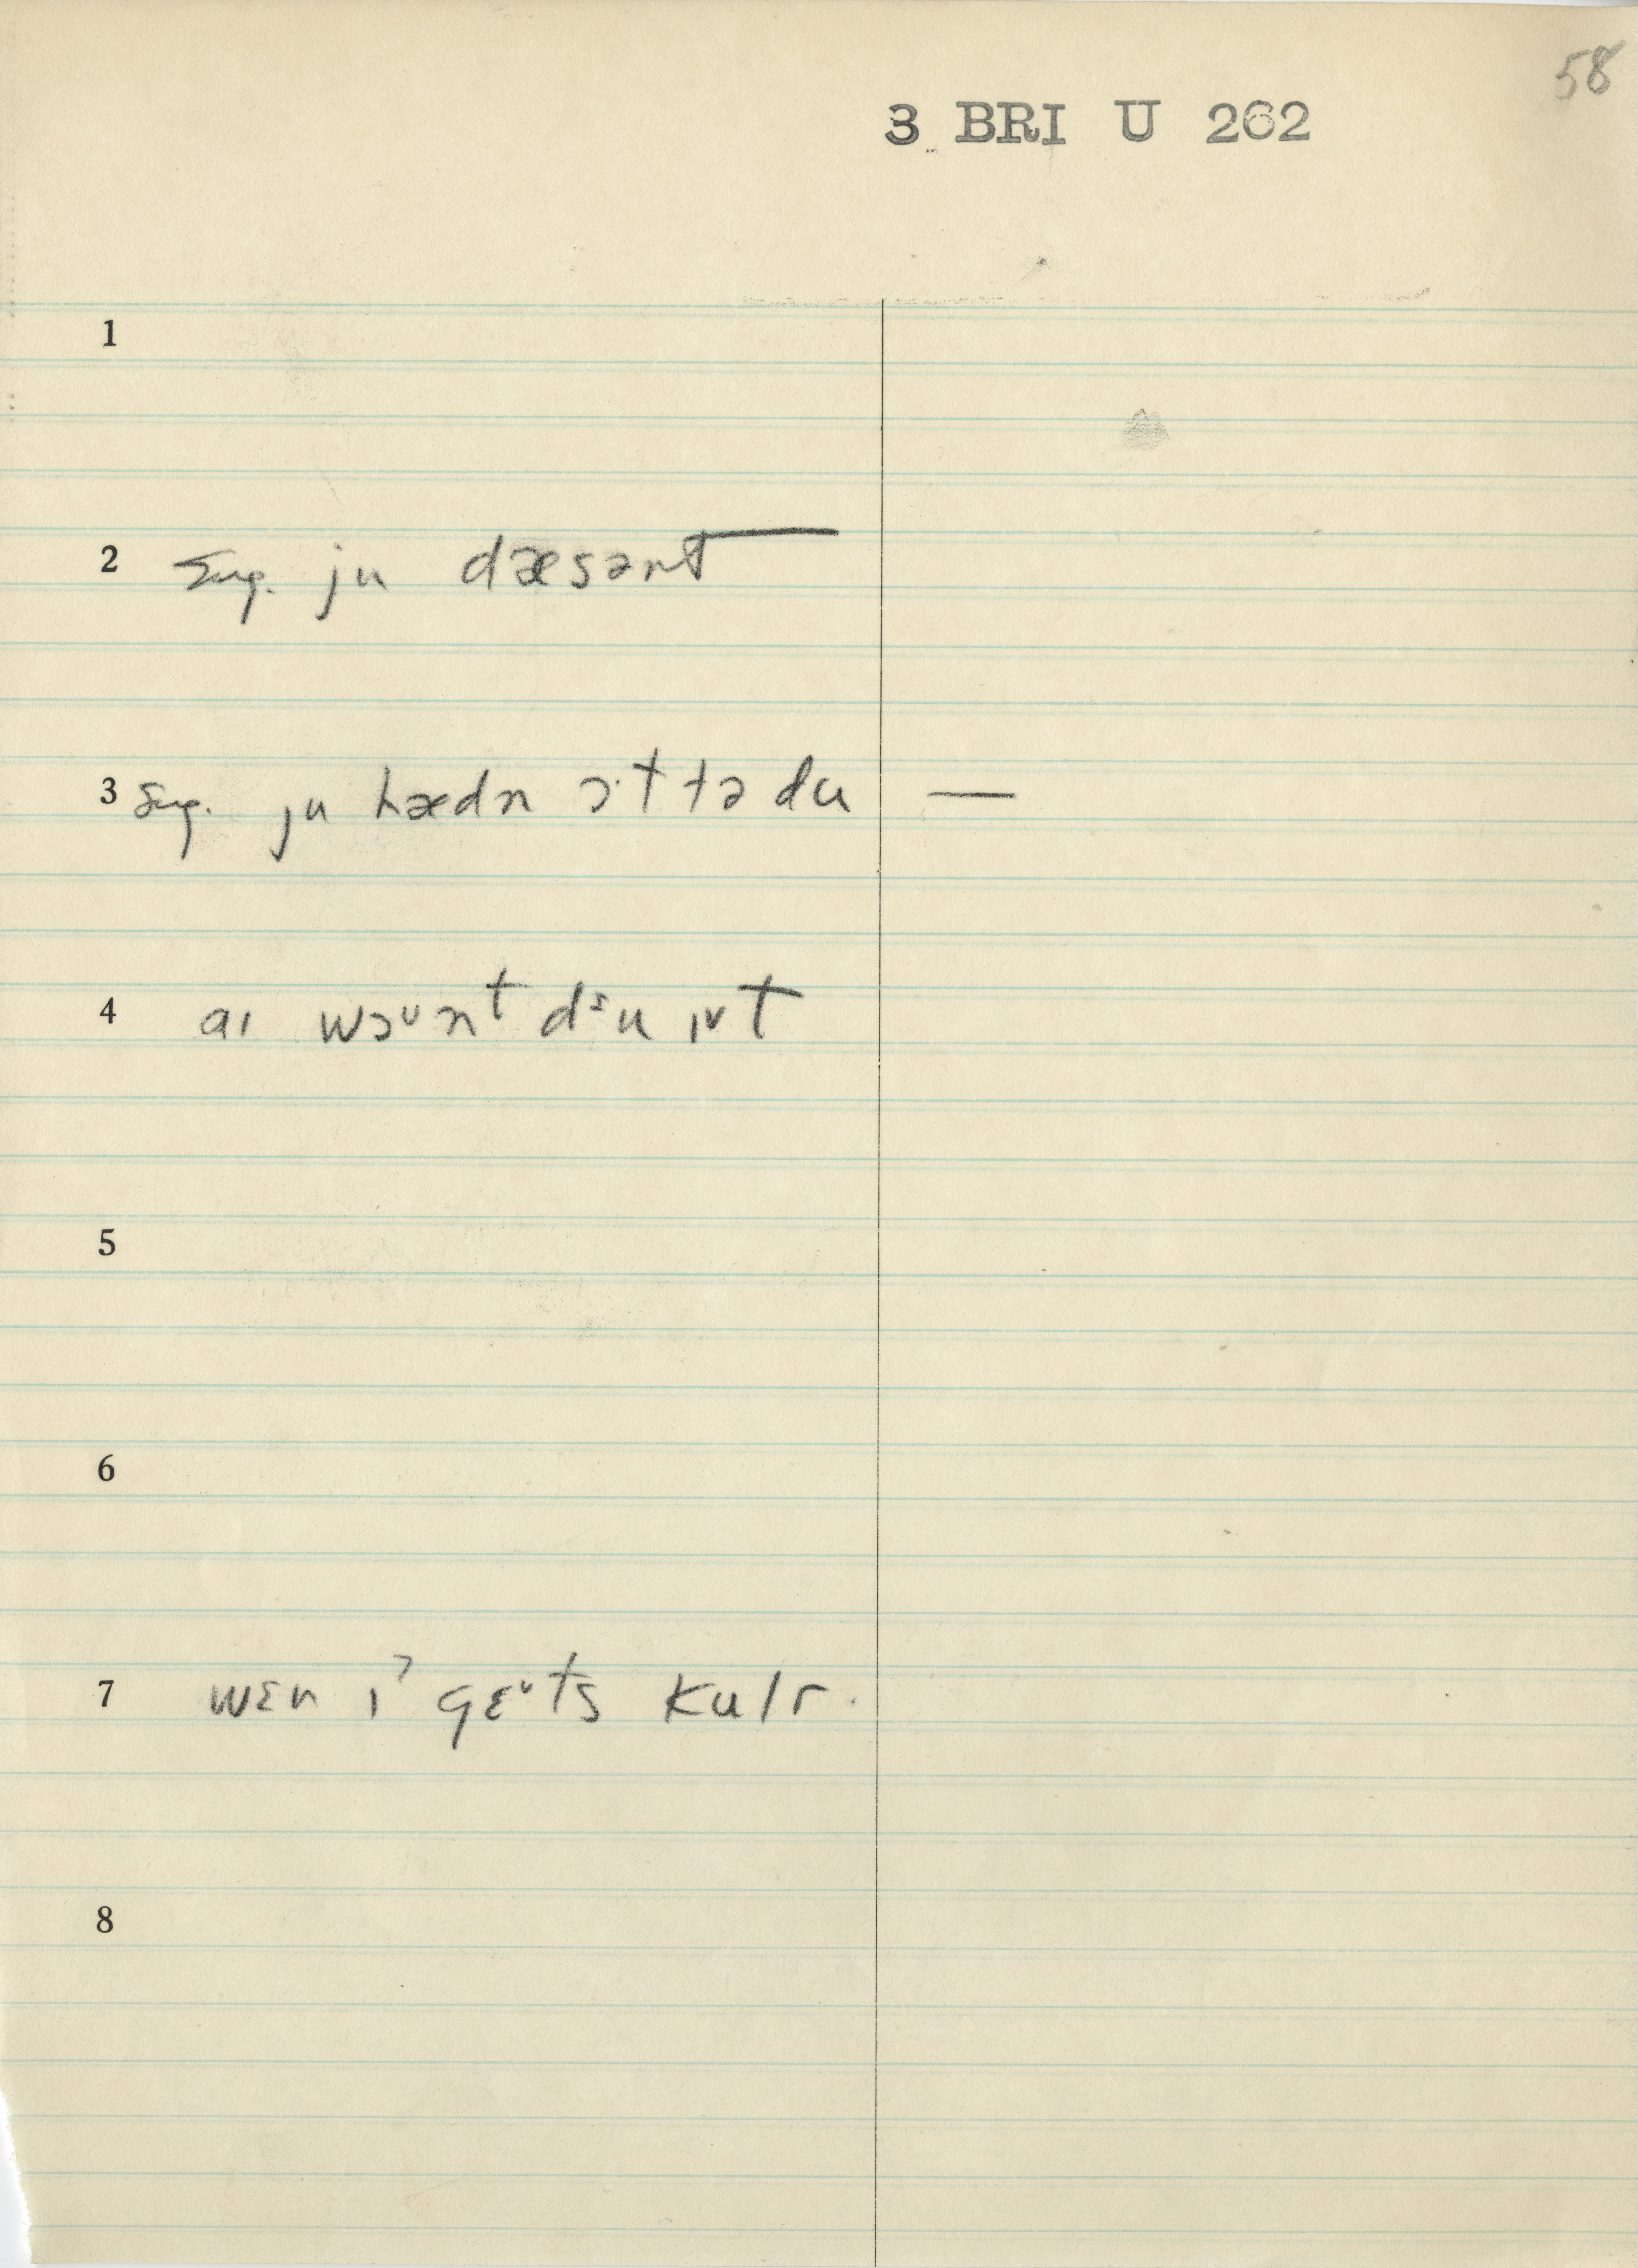 58
3 BRI U 262
1
2 Sug. ju dæsənt
3 Sug. ju hædn ɔ·t tə du —
4 aɪ wɔᵘnᵗ dᶻu ɪᵛt
5
6
7 wɛn ɪˀ gɛᵛts kulr.
8